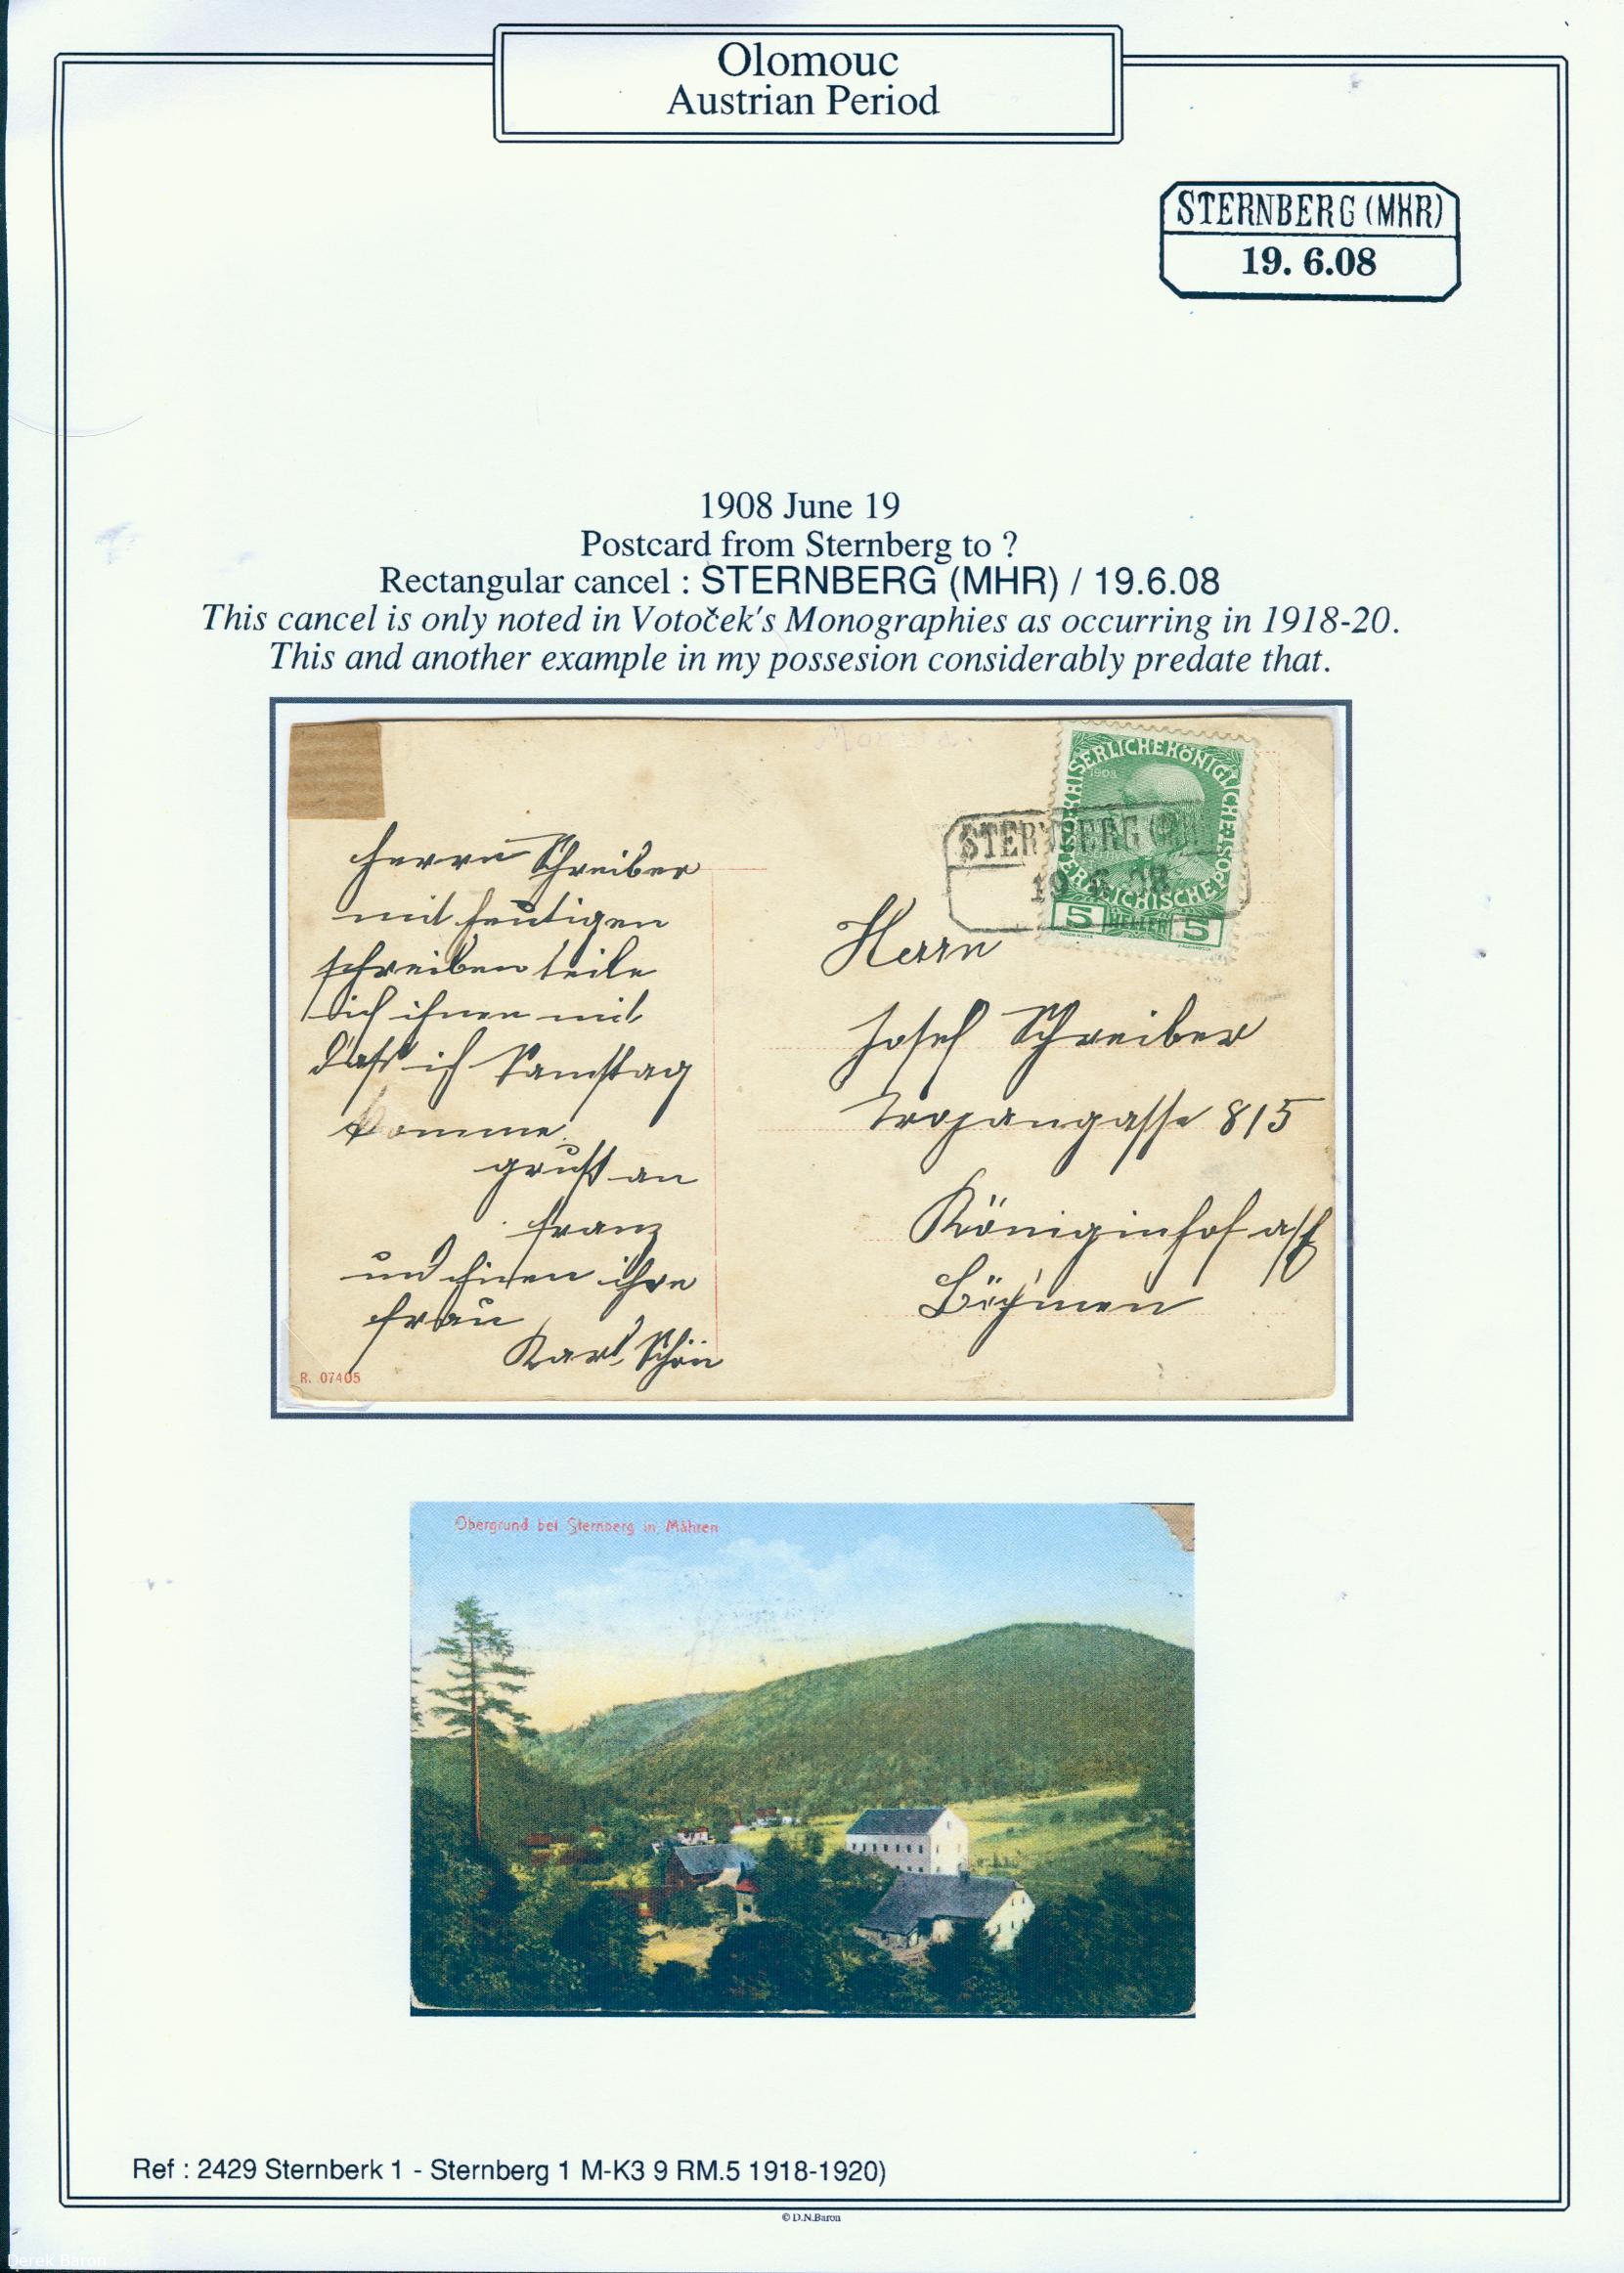 Olomouc
Austrian Period
STERNBERG (MHR)
19. 6.08
1908 June 19
Postcard from Sternberg to ?
Rectangular cancel : STERNBERG (MHR) / 19.6.08
This cancel is only noted in Votoček's Monographies as occurring in 1918-20.
This and another example in my possesion considerably predate that.
KAISERLICHEKÖNIGLICHEÖSTERREICHISCHEPOST
1908
5 HELLER 5
STERNBERG
19 6 08
Herrn Schreiber
mit heutigen
schreiben teile
ich ihnen mit
dass ich Samstag
komme.
gruss an
Franz
und ihre
frau
Karl Schön
R. 07405
Herrn
Josef Schreiber
Trojangasse 815
Königinhof a/E
Böhmen
Obergrund bei Sternberg in Mähren
Ref : 2429 Sternberk 1 - Sternberg 1 M-K3 9 RM.5 1918-1920)
© D.N.Baron
Derek Baron